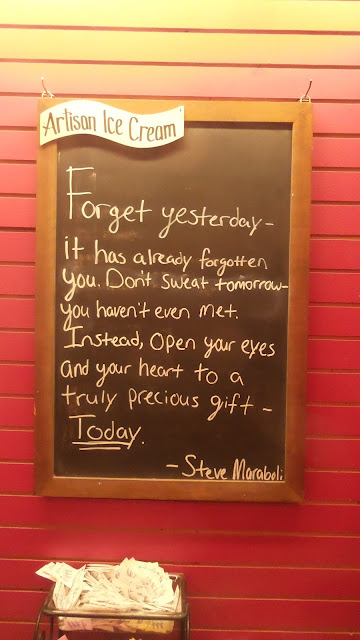 Artisan Ice Cream
Forget yesterday-
it has already forgotten
you. Don't sweat tomorrow-
you haven't even met.
Instead, open your eyes
and your heart to a
truly precious gift -
Today.
- Steve Maraboli